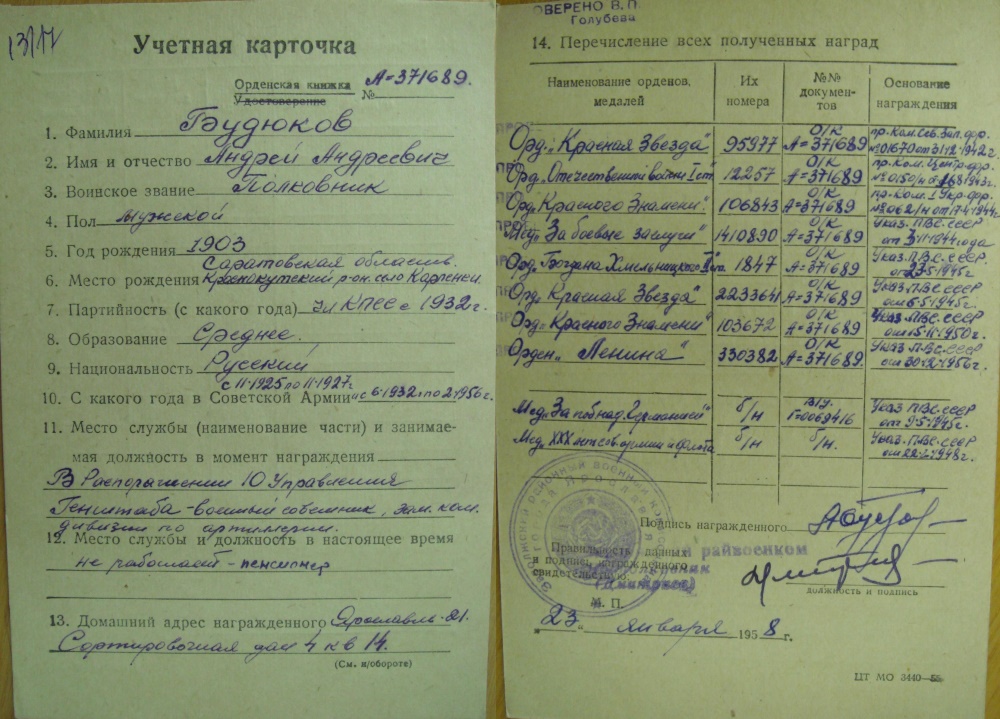 13717
Учетная карточка
Орденская книжка
Удостоверение № А=371689.
1. Фамилия Будюков
2. Имя и отчество Андрей Андреевич
3. Воинское звание Полковник
4. Пол Мужской
5. Год рождения 1903
Саратовская область.
6. Место рождения Краснокутский р-он. село Карпенки
7. Партийность (с какого года) Чл КПСС с 1932 г.
8. Образование Среднее.
9. Национальность Русский
с 11-1925 по 11-1927 г.
10. С какого года в Советской Армии и с 6-1932 г. по 2-1956 г.
11. Место службы (наименование части) и занимае-
мая должность в момент награждения
В Распоряжении 10 Управления
Генштаба - военный советник, зам. ком.
дивизии по артиллерии.
12. Место службы и должность в настоящее время
не работает - пенсионер
13. Домашний адрес награжденного Ярославль-21.
Сортировочная дом 4 кв 14.
(См. н/обороте)
ОВЕРЕНО В. П.
Голубева
14. Перечисление всех полученных наград
Наименование орденов, медалей Их номера №№ документов Основание награждения
Орд. „Красная Звезда" 95977 О/К А=371689 пр. Ком. Сев. Зап. фр. №01670 от 31-12-1942 г.
Орд. „Отечественной войны I ст. 12257 О/К А=371689 пр. Ком. Центр. фр. №0150/н
Орд. „Красного Знамени". 106843 О/К А=371689 пр. Ком. 1 Укр. фр. №062/н от 17-4-1944 г.
Мед. „За боевые заслуги" 1410890 О/К А=371689 Указ. ПВС. СССР от 3-11-1944 года
Орд. „Богдана Хмельницкого II ст. 1847 О/К А=371689 Указ. ПВС. СССР от 23-5-1945 г.
Орд. „Красная Звезда" 2233641 О/К А=371689 Указ ПВС. СССР от 6-5-1945 г.
Орд. „Красного Знамени" 103672 О/К А=371689 Указ ПВС. СССР от 15-11-1950 г.
Орден „Ленина" 330382 О/К А=371689 Указ ПВС. СССР от 30-12-1956 г.
Мед. „За побед. над. Германией" б/н Г=0069416 Указ ПВС. СССР от 9-5-1945 г.
Мед. XXX лет сов. армии и флота б/н б/н. Указ. ПВС. СССР от 22-2-1948 г.
Подпись награжденного
Правильность данных
и подпись награжденного
свидетельствую:
райвоенком
(Дмитриев)
должность и подпись
М. П.
„23" января 1958 г.
ЦТ МО 3440—55